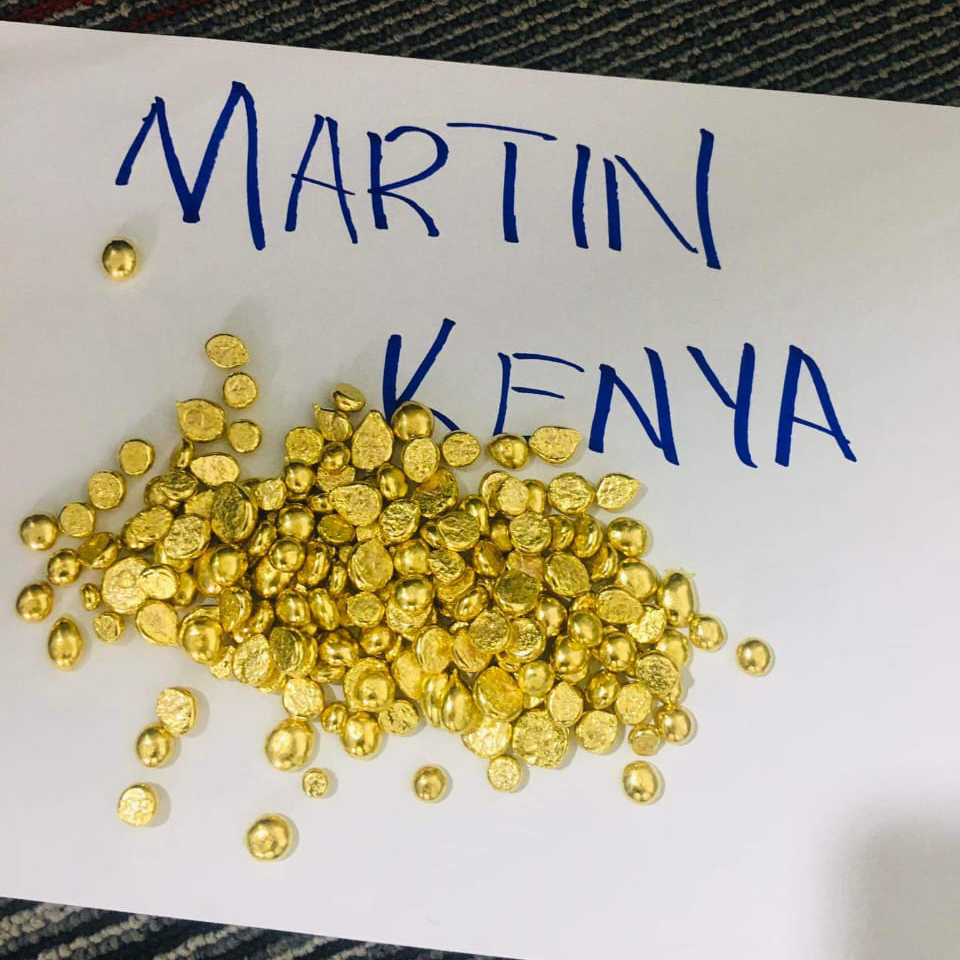 MARTIN
KENYA